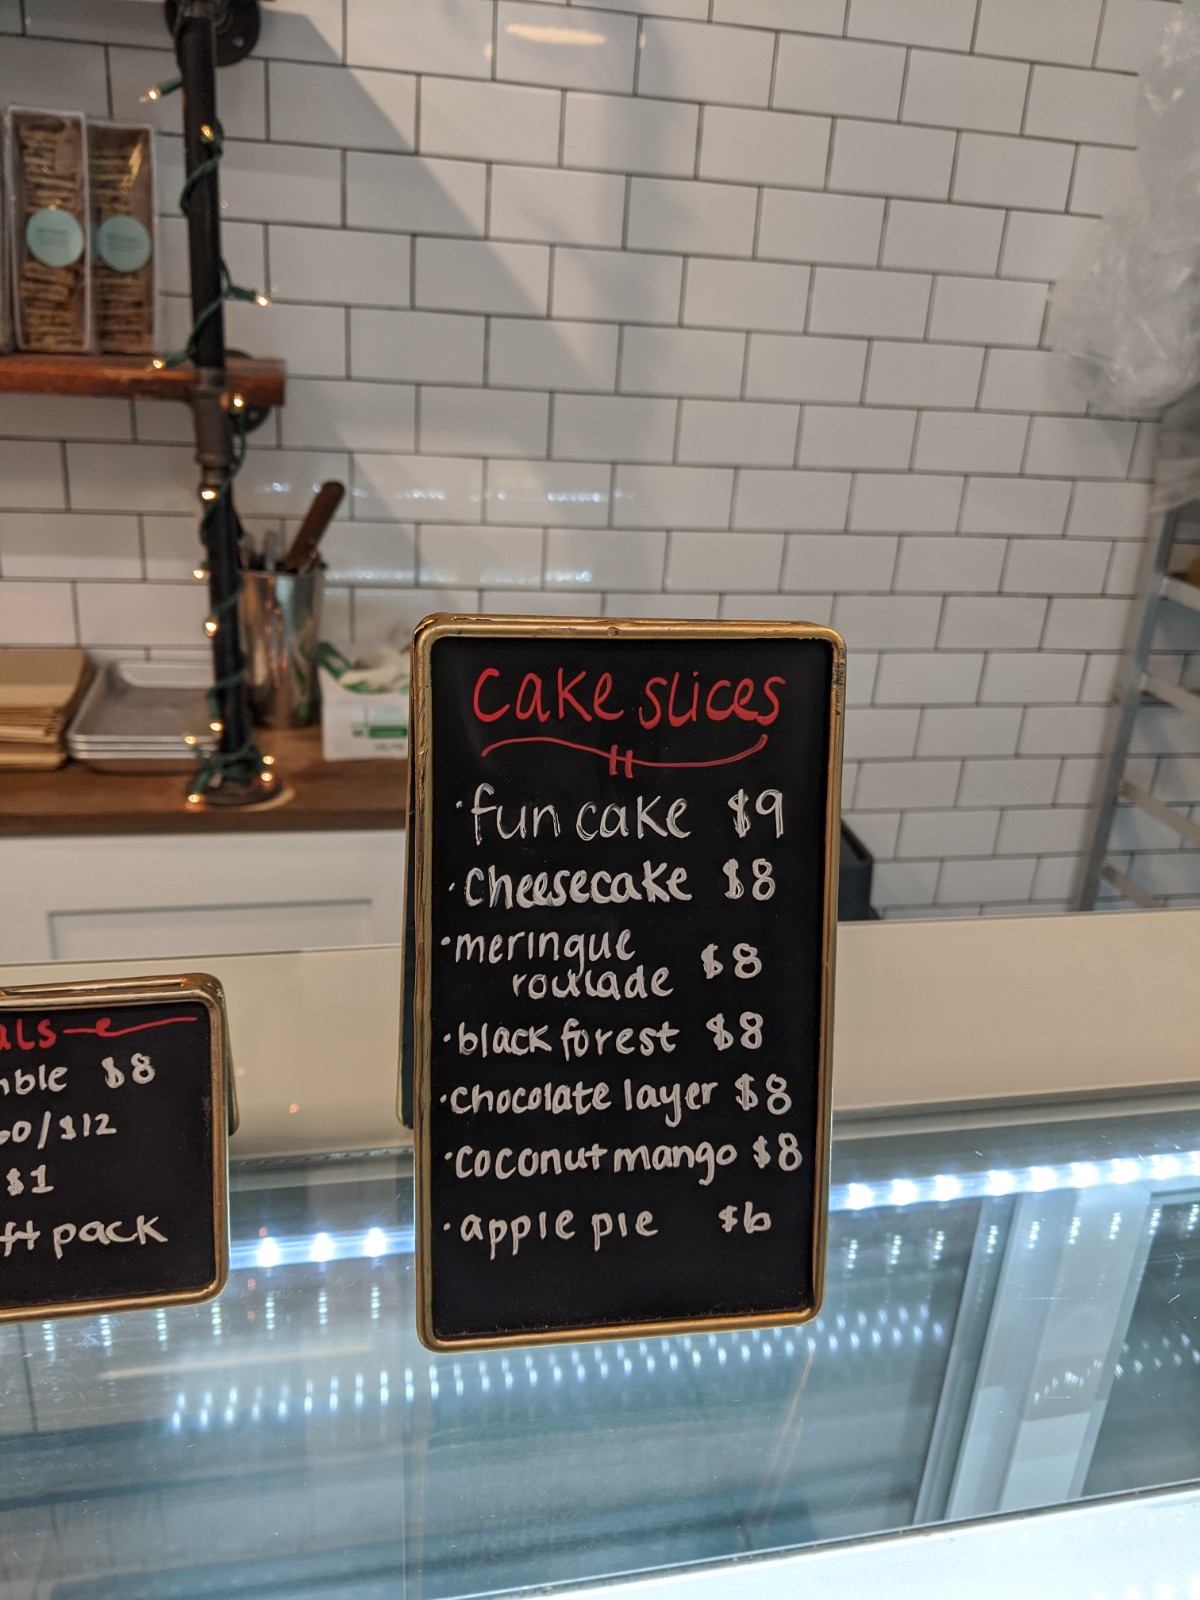 cake slices
· fun cake $9
· cheesecake $8
· meringue
roulade $8
· black forest $8
· chocolate layer $8
· coconut mango $8
· apple pie $6
$8
/$12
$1
pack